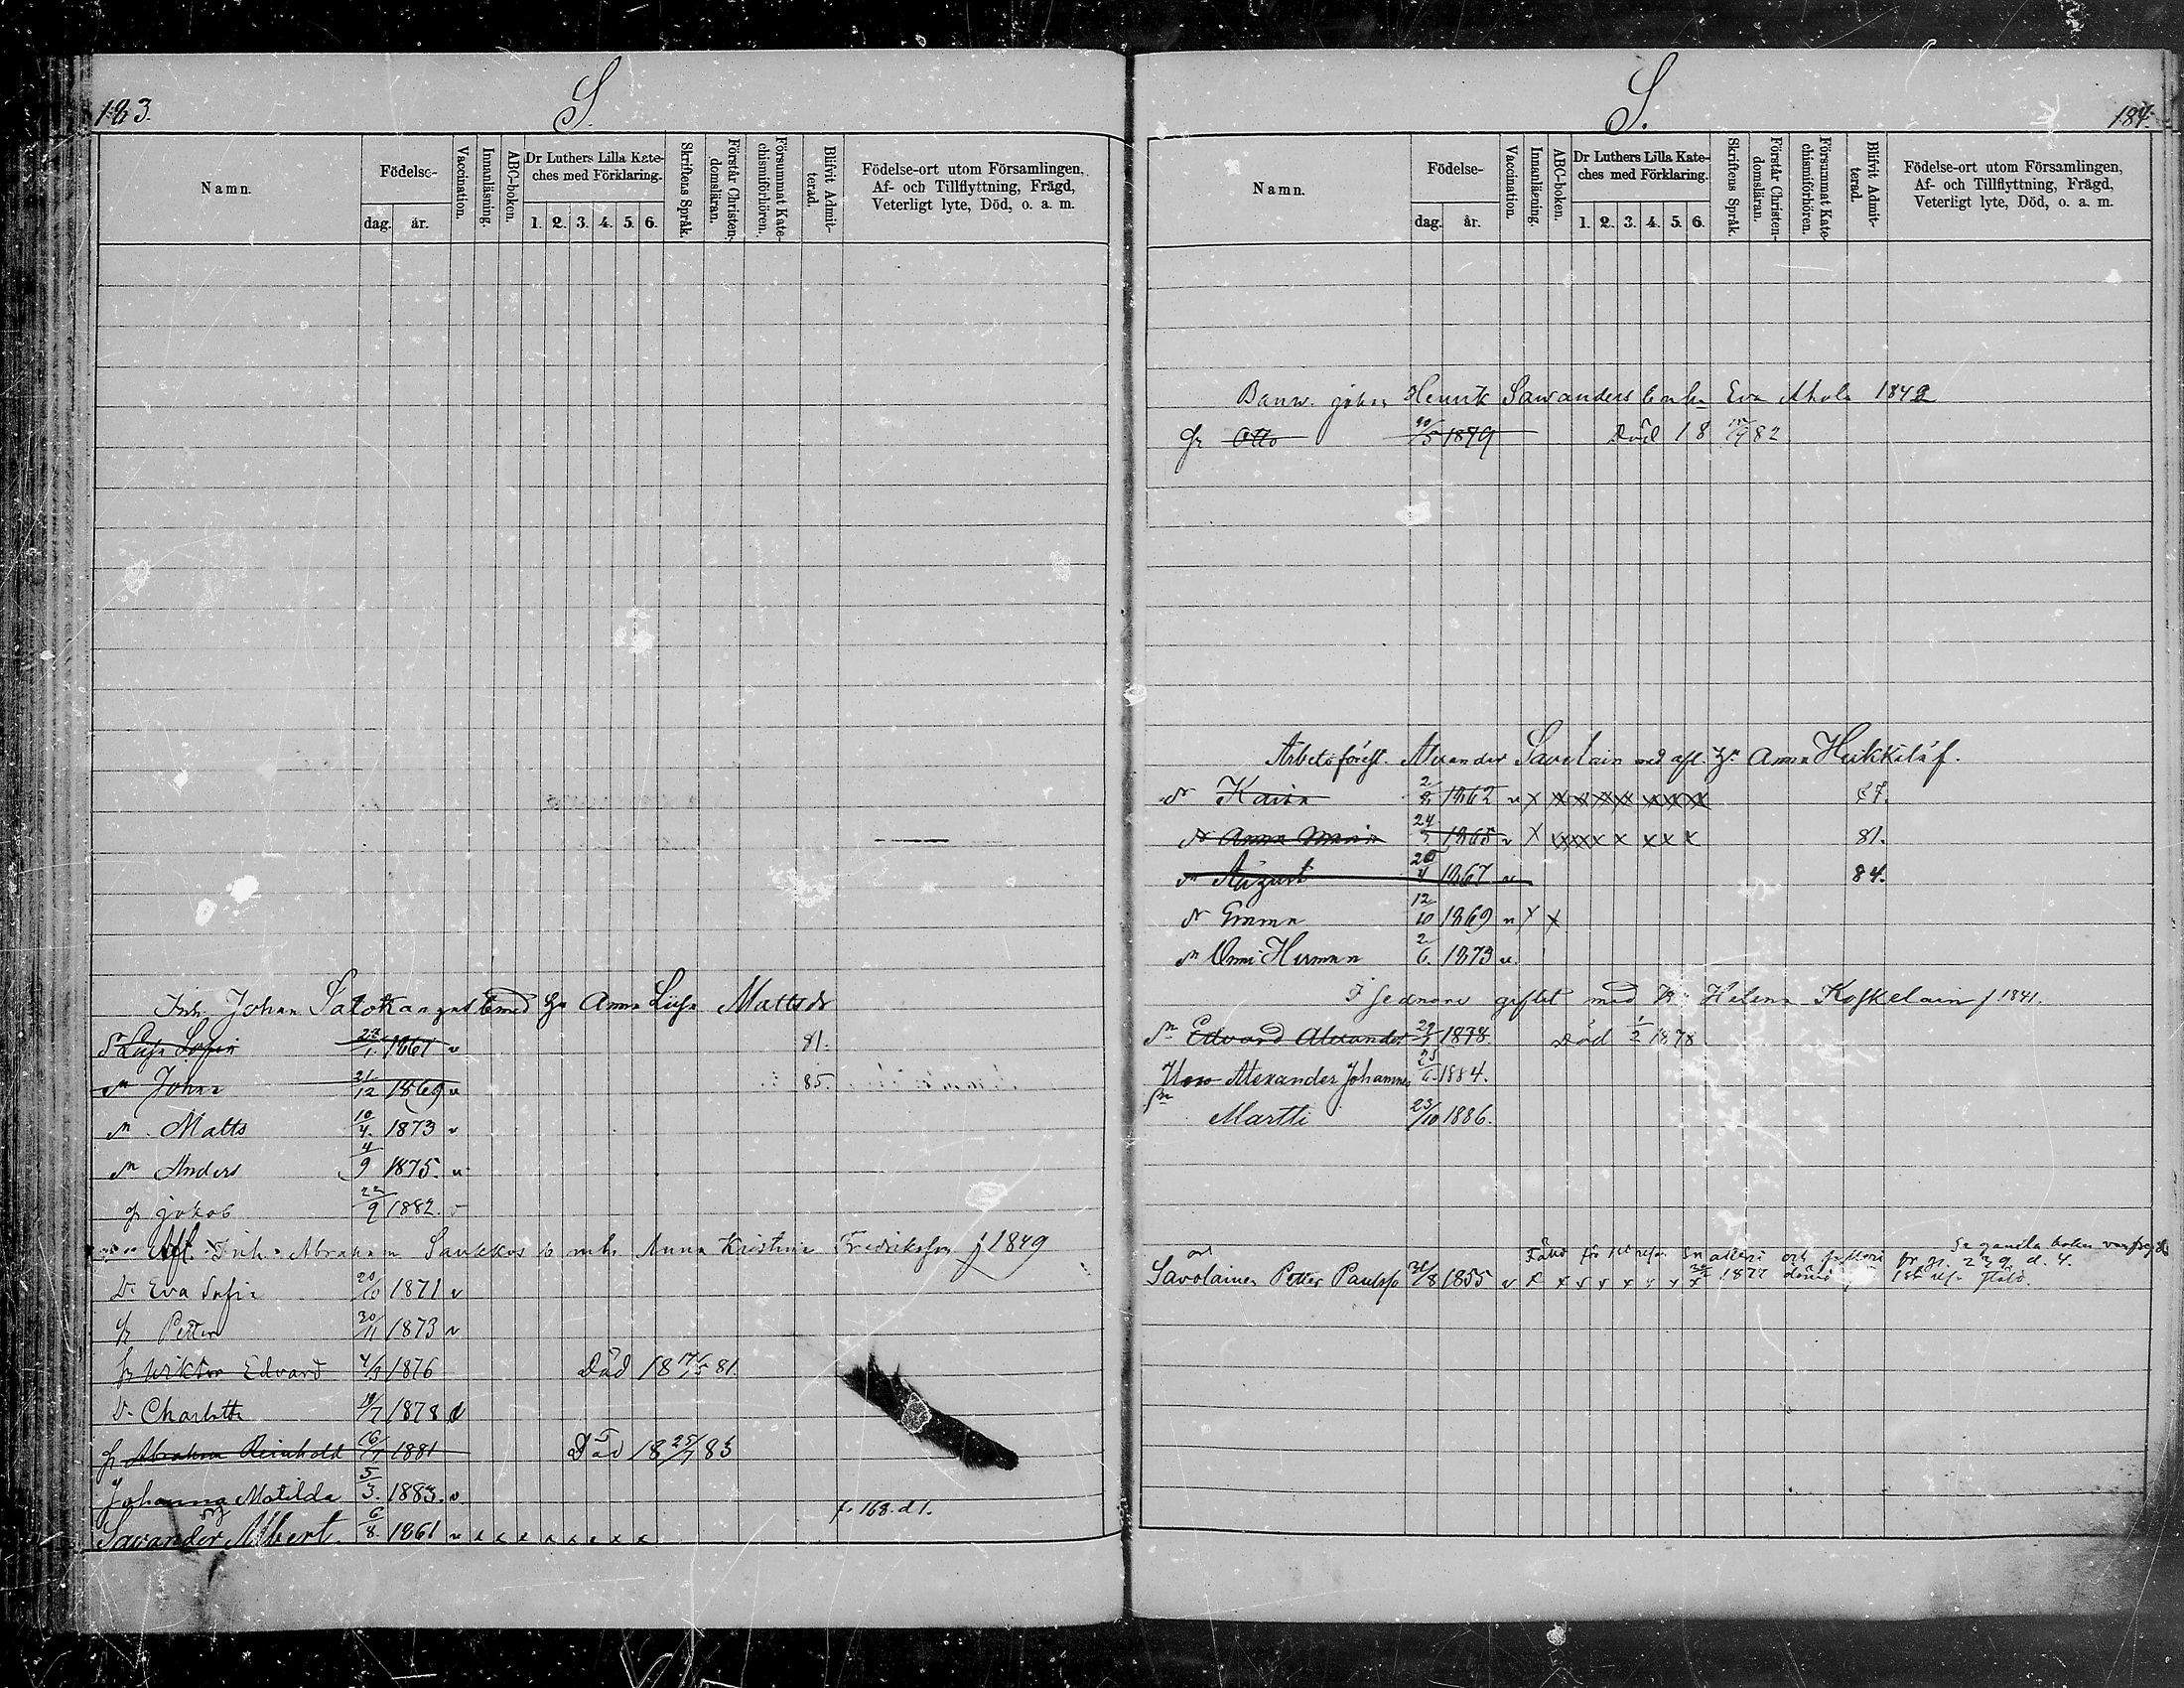 183.
S.
Namn.
Födelse-
dag.
år.
Vaccination.
Innanläsning.
ABC-boken.
Dr Luthers Lilla Kate-
ches med Förklaring.
1. 2. 3. 4. 5. 6.
Skriftens Språk.
Förstår Christen-
domsläran.
Försummat Kate-
chismiförhören.
Blifvit Admit-
terad.
Födelse-ort utom Församlingen,
Af- och Tillflyttning, Frägd,
Veterligt lyte, Död, o. a. m.
Inh. Johan Salokangas med h Anna Lisa Mattsdr
Lisa Sofia 27/1 1861 v 81.
Johan 21/12 1869 v 85.
Matts 10/4 1873 v
Anders 4/9 1875 v
Jakob 22/9 1882.
Afl. Inh. Abraham Saukkos b m h. Anna Kristina Fredriksson f 1849
D. Eva Sofia 20/10 1871 v
Petter 30/11 1873 v
Wiktor Edvard 4/9 1876 Död 18 17/5 81.
D. Charlotta 19/7 1878 v
Abraham Reinhold 16/7 1881 Död 18 25/7 83
Johanna Matilda 5/3. 1883. v.
Savander Albert 6/8. 1861 v x x x x x x x x f. 168. d 1.
S.
184.
Namn.
Födelse-
dag.
år.
Vaccination.
Innanläsning.
ABC-boken.
Dr Luthers Lilla Kate-
ches med Förklaring.
1. 2. 3. 4. 5. 6.
Skriftens Språk.
Förstår Christen-
domsläran.
Försummat Kate-
chismiförhören.
Blifvit Admit-
terad.
Födelse-ort utom Församlingen,
Af- och Tillflyttning, Frägd,
Veterligt lyte, Död, o. a. m.
Banv. Johan Henrik Savanders b m h Eva 1842
Otto 10/5 1879 Död 18 82
Arbetsförest. Alexander Savolain med afl. h. Anna Heikkilä f.
Karin 2/8 1862 v x x x x x x x x x 87.
Anna Maria 24/5 1865 v x x x x x x x x x 81.
August 20/4 1867 v 84.
Emma 12/10 1869 v x x
Onni Herman 2/6. 1873 v.
I sednare giftet med h. Helena Koskelain f 1841.
Edvard Alexander 29/1 1878. Död 1/2 1878
Uno Alexander Johannes 25/6 1884.
Martti 23/10 1886.
Savolainen Petter Paulsso 31/8 1855 v x x x x x x x x 1877